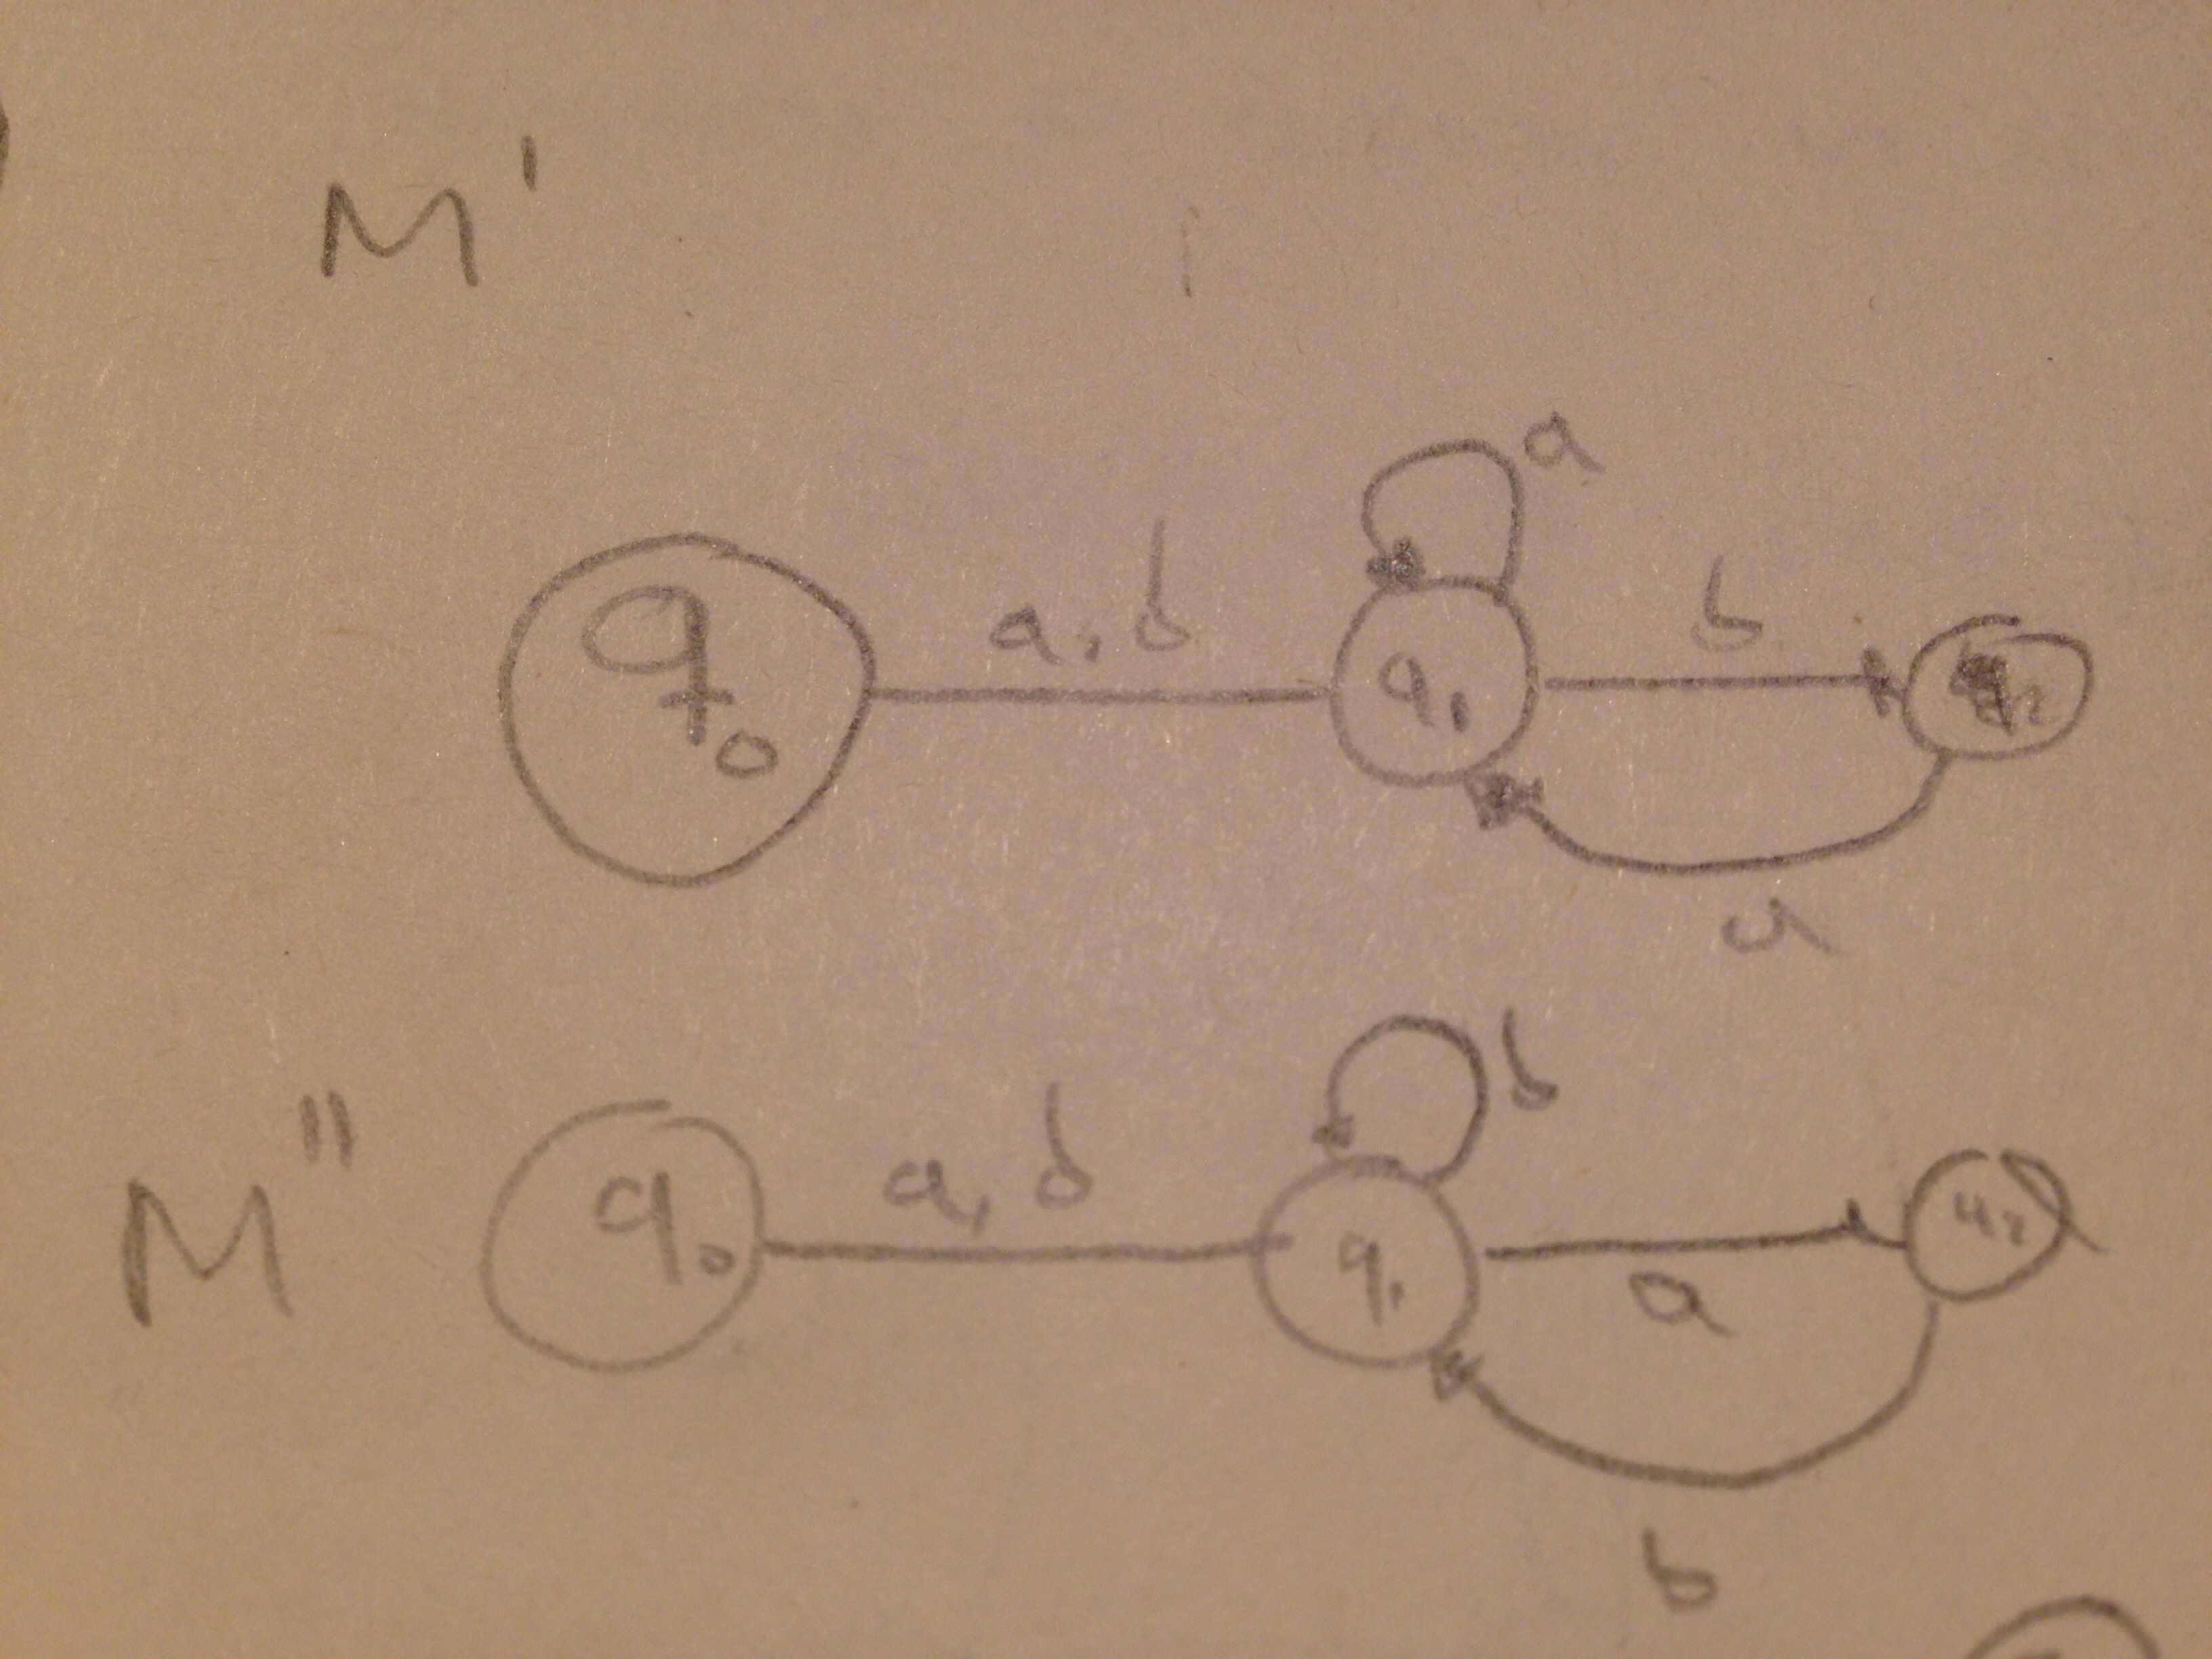 M'
a
q₀ a, b q₁ b q₂
a
M"
b
q₀ a, b q₁ a q₂
b